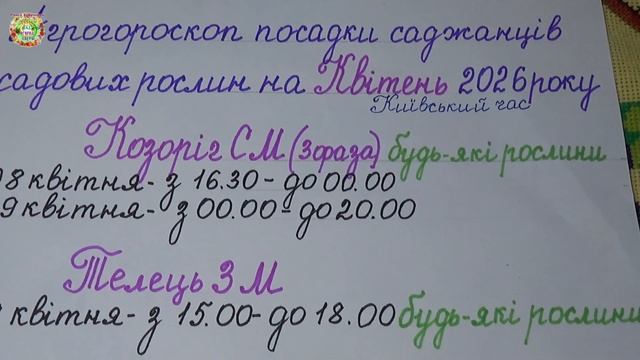 грогороскоп посадки саджанців
садових рослин на Квітень 2026 року
Київський час
Козоріг СМ (3 фаза) будь-які рослини
8 квітня - з 16.30 - до 00.00
9 квітня - з 00.00 - до 20.00
Телець ЗМ
квітня - з 15.00 - до 18.00 будь-які рослини